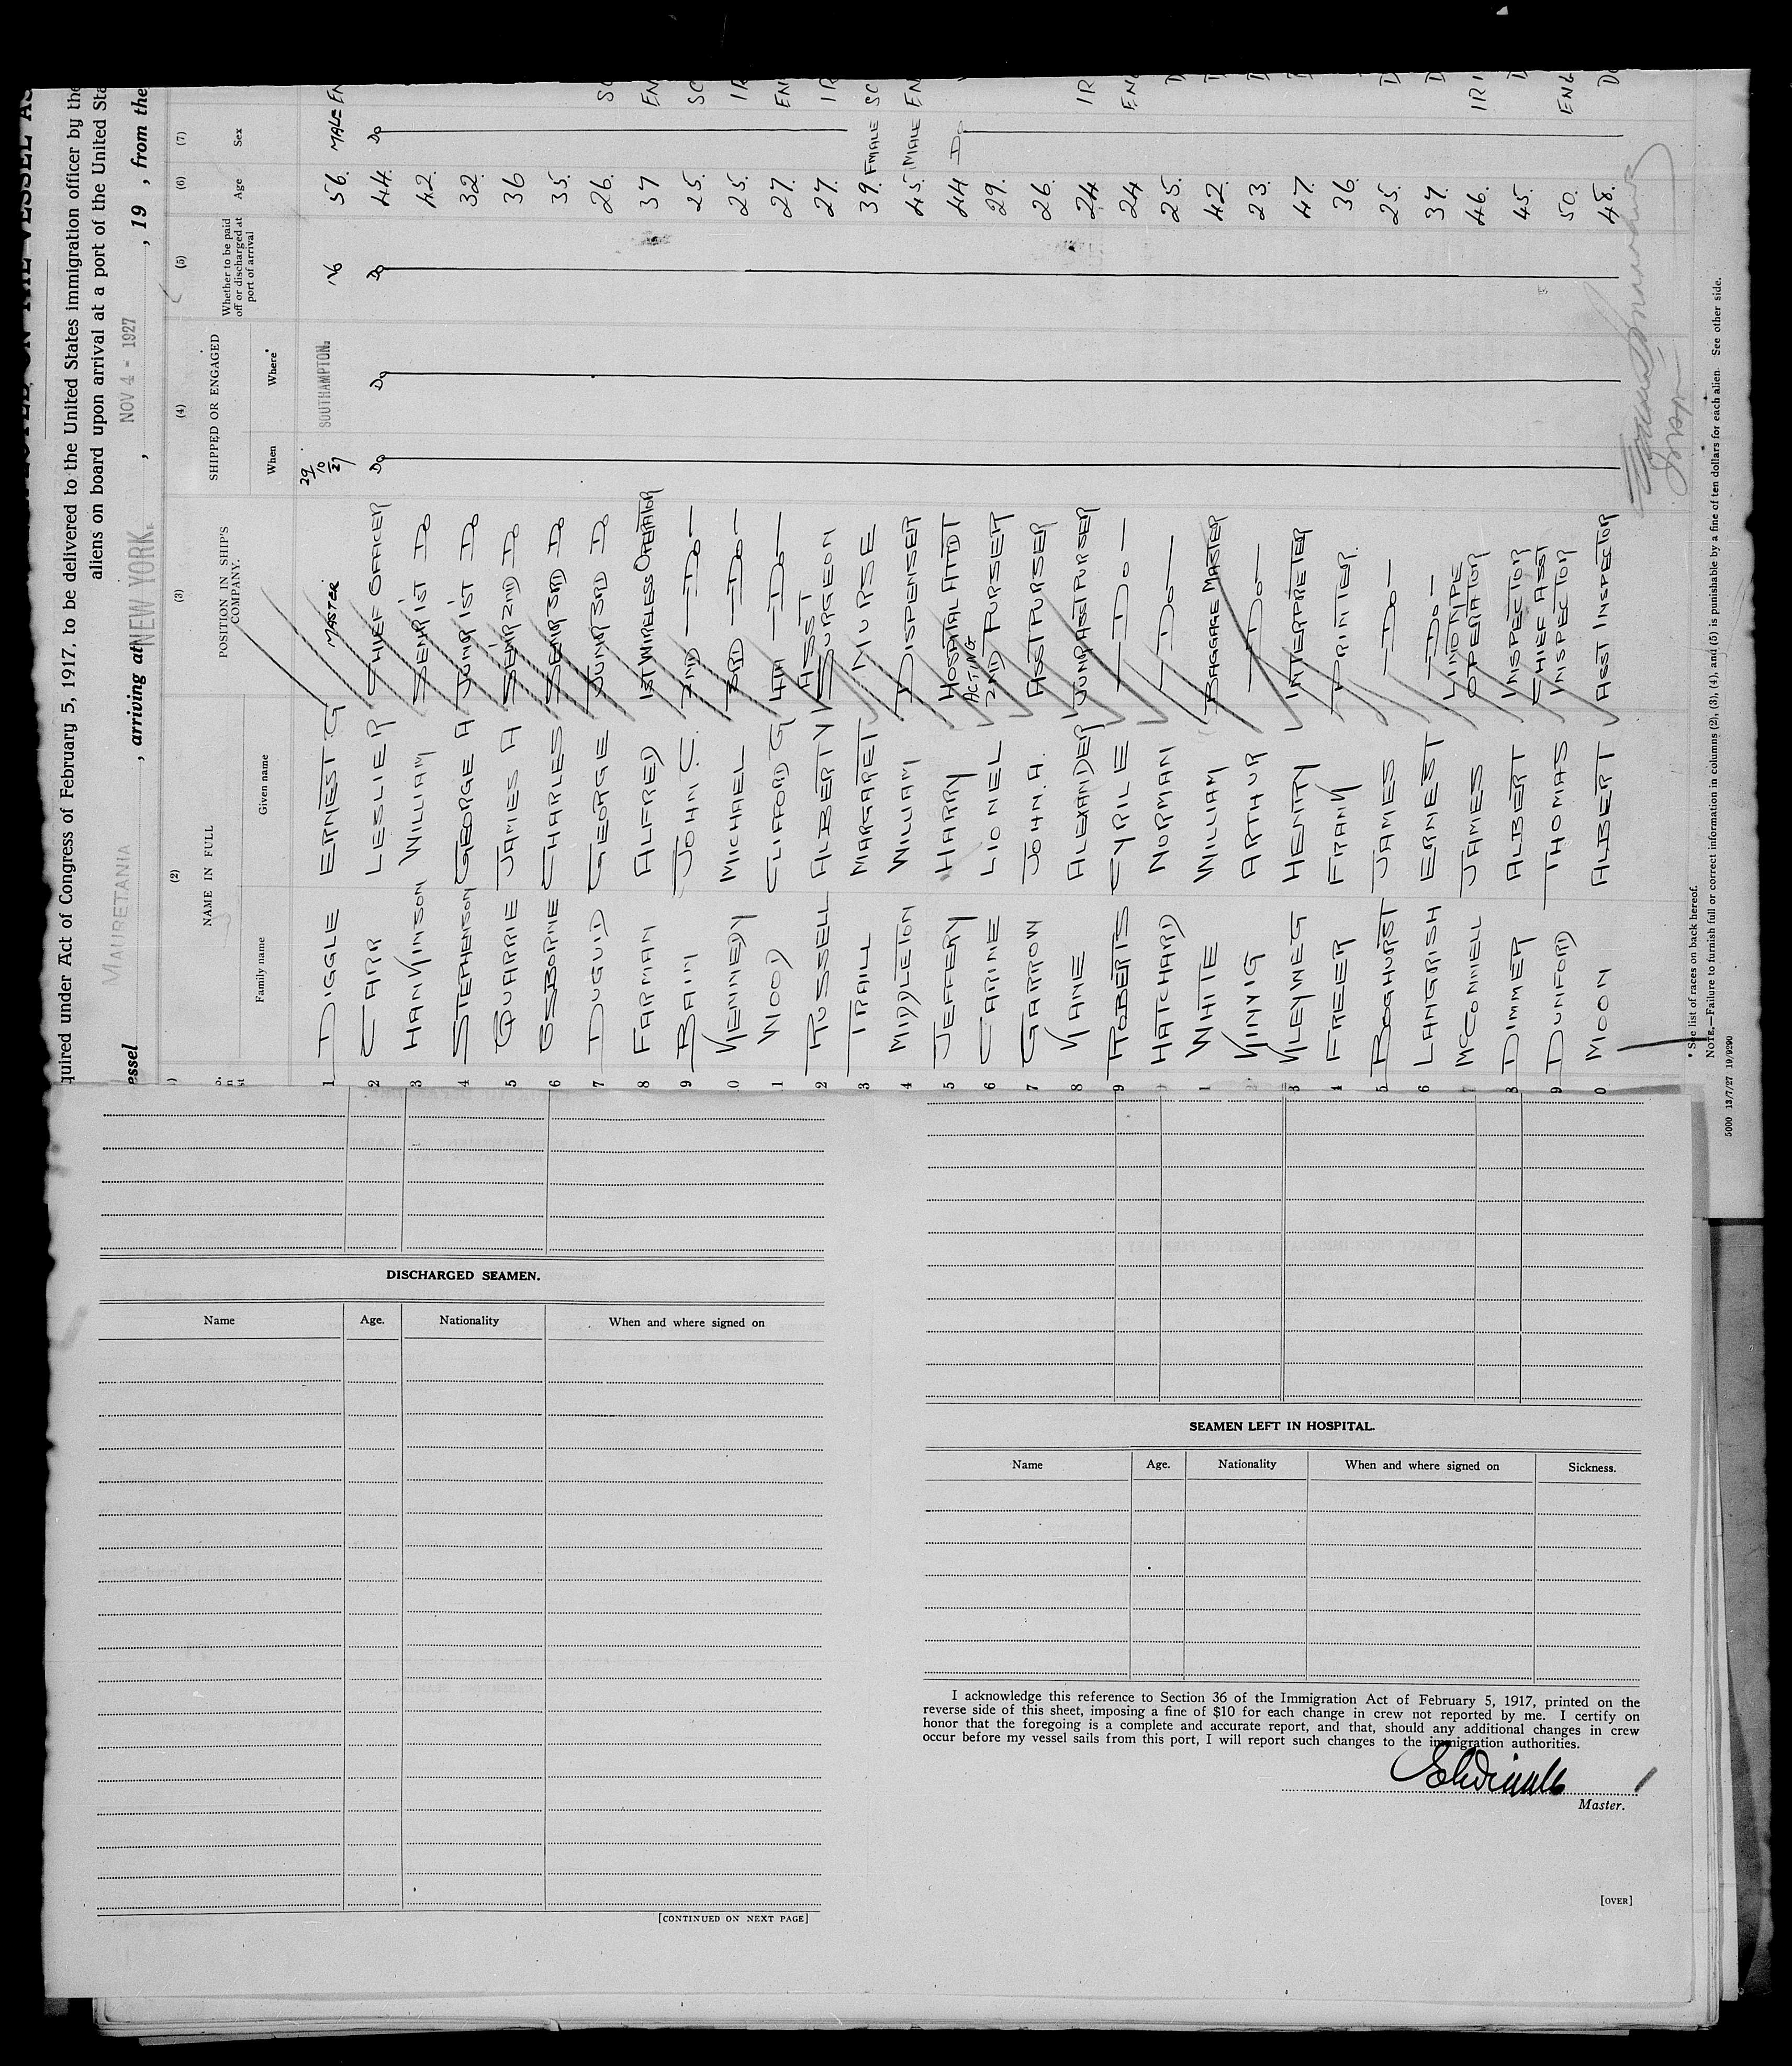 quired under Act of Congress of February 5, 1917, to be delivered to the United States immigration officer by the
aliens on board upon arrival at a port of the United Sta
essel MAURETANIA , arriving at NEW YORK. , NOV 4 - 1927 , 19 , from the
(2) (3) (4) (5) (6) (7)
NAME IN FULL POSITION IN SHIP'S COMPANY. SHIPPED OR ENGAGED Whether to be paid off or discharged at port of arrival Age Sex
Family name Given name When Where*
1 DIGGLE ERNEST G MASTER 29/10/27 SOUTHAMPTON. No 56. MALE EN
2 CARR LESLIE R CHIEF OFFICER Do Do Do 44. Do
3 HANKINSON WILLIAM SENR 1ST Do 42.
4 STEPHENSON GEORGE A JUNR 1ST Do 32.
5 QUARRIE JAMES A SENR 2ND Do 36
6 OSBORNE CHARLES SENR 3RD Do 35.
7 DUGUID GEORGE JUNR 3RD Do 26. SC
8 FARMAN ALFRED 1ST WIRELESS OPERATOR 37 EN
9 BAIN JOHN C. 2ND -Do- 25. SC
0 KENNEDY MICHAEL 3RD -Do- 25. IR
1 WOOD CLIFFORD G 4TH -Do- 27. EN
2 RUSSELL ALBERT V ASST SURGEON 27. IR
3 TRAILL MARGARET NURSE 39. FMALE SC
4 MIDDLETON WILLIAM DISPENSER 45. MALE EN
5 JEFFERY HARRY HOSPITAL ATTDT 44 Do
6 CARINE LIONEL ACTING 2ND PURSER 29.
7 GARROW JOHN. A. ASST PURSER 26.
8 KANE ALEXANDER JUNR ASST PURSER 24. IR
9 ROBERTS CYRIL E -Do- 24 EN
HATCHARD NORMAN -Do- 25. D
1 WHITE WILLIAM BAGGAGE MASTER 42.
KINNIG ARTHUR -Do- 23.
3 KLEYNEG HENRY INTERPRETER 47.
4 FREER FRANK PRINTER. 36.
5 BOGHURST JAMES -Do- 25. D
6 LANGRISH ERNEST -Do- 37. D
MCCONNELL JAMES LINOTYPE OPERATOR 46. IRI
8 DIMMER ALBERT INSPECTOR 45.
9 DUNFORD THOMAS CHIEF ASST INSPECTOR 50. ENG
0 MOON ALBERT ASST INSPECTOR 48. Do
* See list of races on back hereof.
NOTE.—Failure to furnish full or correct information in columns (2), (3), (4), and (5) is punishable by a fine of ten dollars for each alien. See other side.
5000 13/7/27 19/9290
DISCHARGED SEAMEN.
Name Age. Nationality When and where signed on
[CONTINUED ON NEXT PAGE]
SEAMEN LEFT IN HOSPITAL.
Name Age. Nationality When and where signed on Sickness.
I acknowledge this reference to Section 36 of the Immigration Act of February 5, 1917, printed on the
reverse side of this sheet, imposing a fine of $10 for each change in crew not reported by me. I certify on
honor that the foregoing is a complete and accurate report, and that, should any additional changes in crew
occur before my vessel sails from this port, I will report such changes to the immigration authorities.
Master.
[OVER]